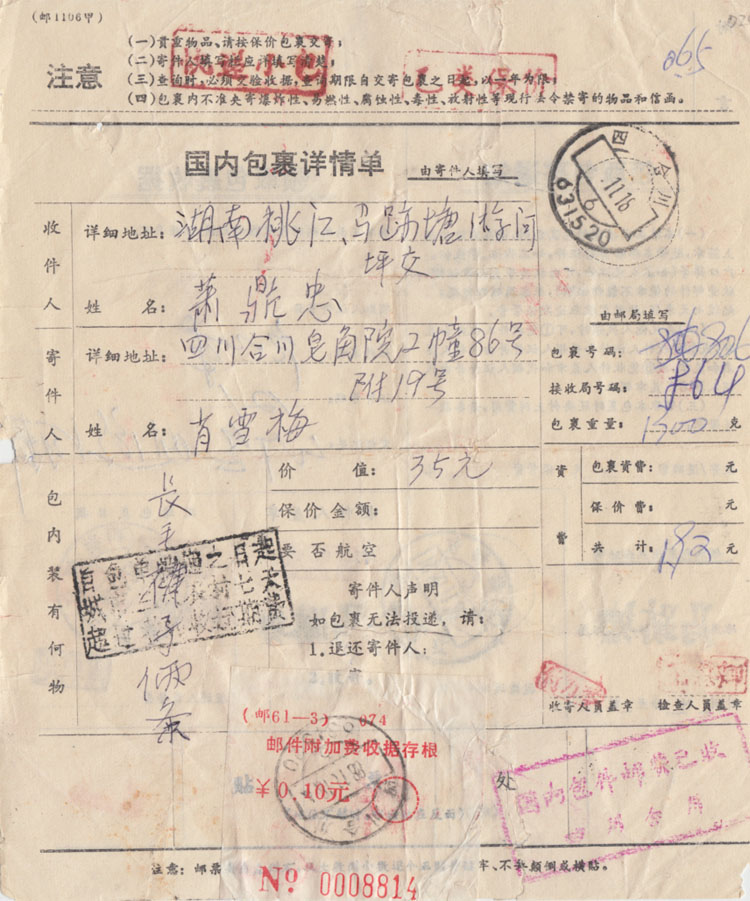 (邮1106甲)
注意
(一)贵重物品、请按保价包裹交寄;
(二)寄件人填写
(三)查询时,必须交验收据,查询期限自交寄包裹之日起,以一年为限;
(四)包裹内不准夹寄爆炸性、易燃性、腐蚀性、毒性、放射性等现行法令禁寄的物品和信函。
乙类保价
065
国内包裹详情单 由寄件人填写
四 合川
11.16
6
631520
收件人
详细地址: 湖南桃江、马跡塘
坪交
姓名: 萧鼎忠
寄件人
详细地址: 四川合川皂角院2幢86号
附19号
姓名: 肖雪梅
由邮局填写
包裹号码:
接收局号码:
包裹重量: 1300 克
资费
包裹资费: 元
保价费: 元
共计: 元
包内装有何物
长毛 裤子俩条
价值: 35元
保价金额:
要否航空
寄件人声明
如包裹无法投递,请:
1.退还寄件人:
收寄人员盖章 检查人员盖章
(邮61—3) 074
邮件附加费收据存根
¥0.10元
处
国内包件邮资已收
注意:邮票
牢、不补颠倒或横贴。
№ 0008814